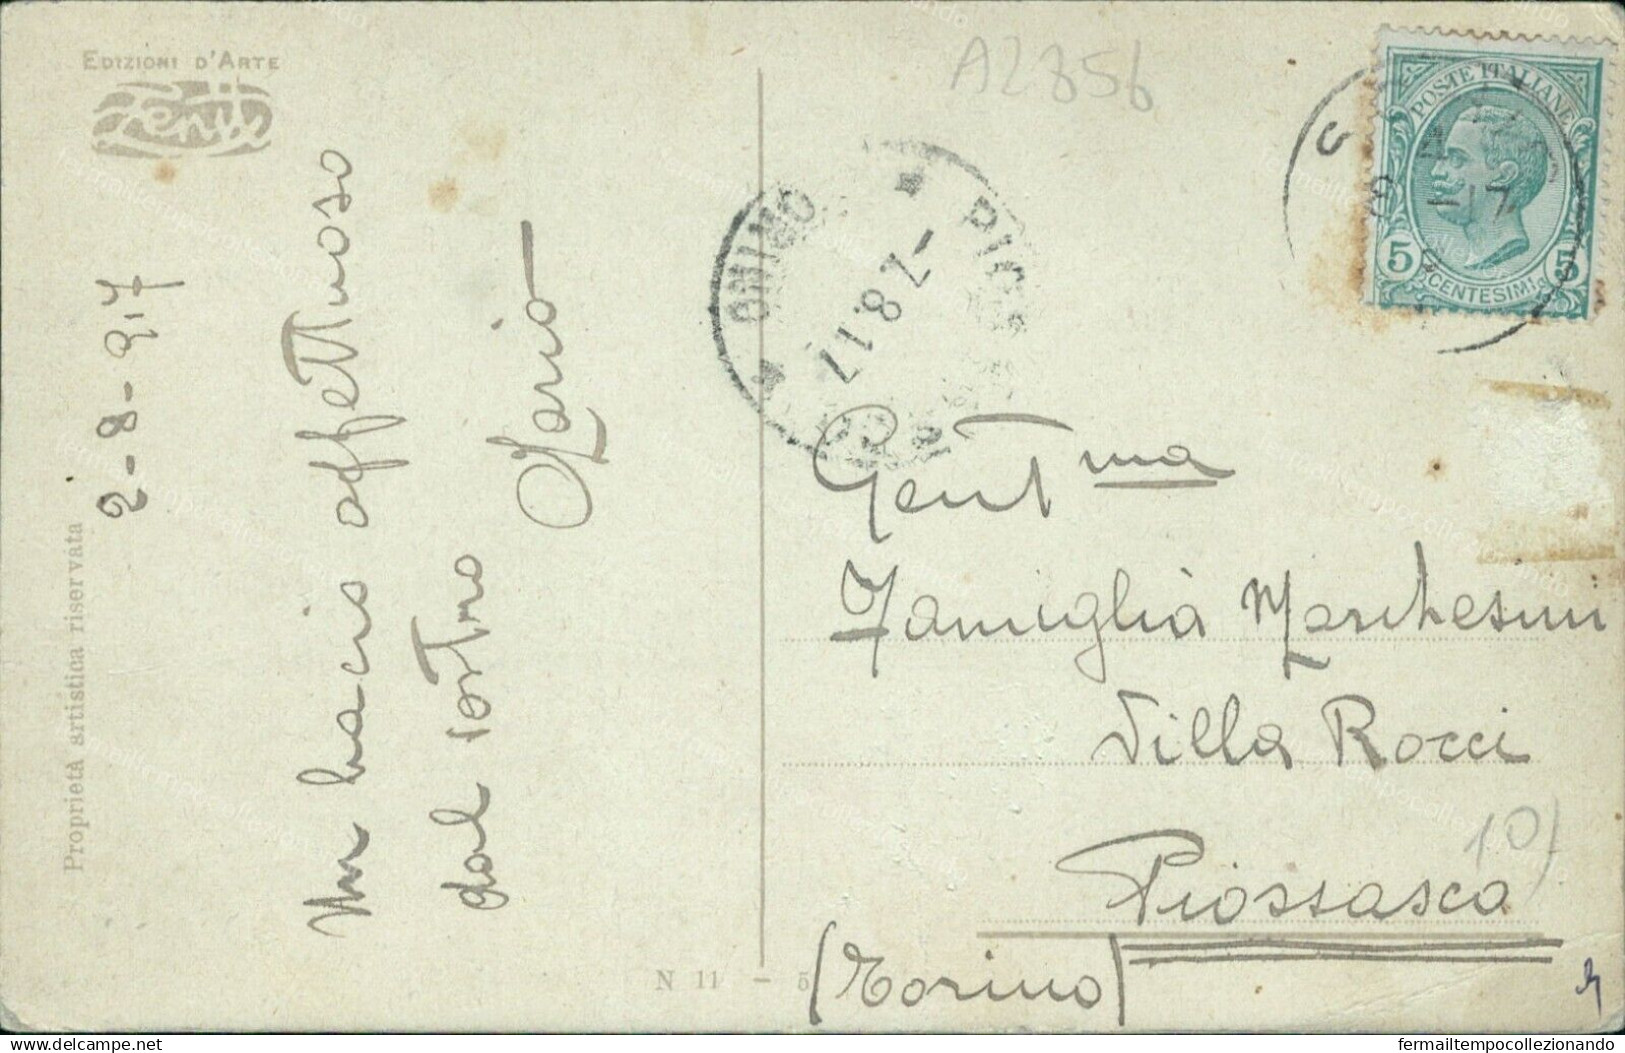 EDIZIONI D'ARTE
Proprietà artistica riservata
2-8-917
Un bacio affettuoso
dal vostro
Mario
N 11 - 5
A2856
POSTE ITALIANE
5 CENTESIMI 5
-7.8.17
TORINO
Gent ma
Famiglia Marchesini
Villa Rocci
Piossasco
(Torino)
10)
delcampe.net
fermailtempocollezionando